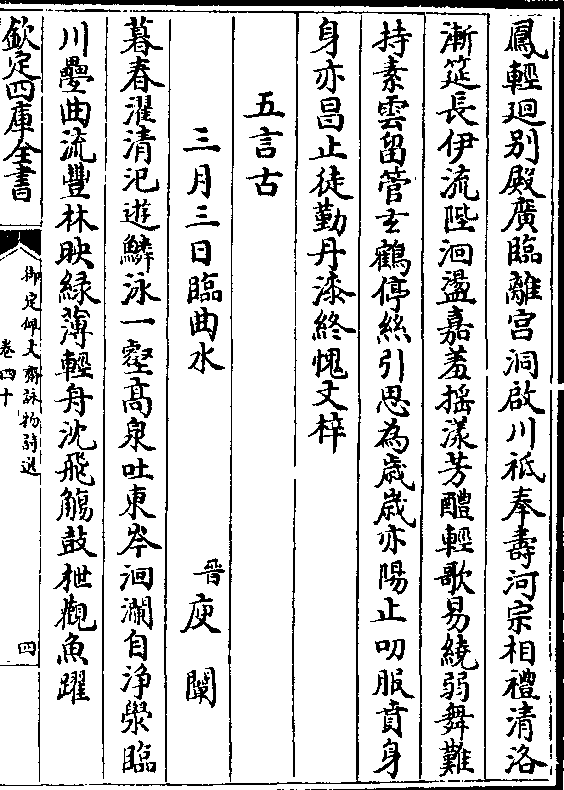 鳳輕迴别殿廣臨離宫洞啟川祗奉壽河宗相禮清洛
漸筵長伊流陛洄盪嘉羞摇漾芳醴輕歌易繞弱舞難
持素雲留管𤣥鶴停絲引思為歲歲亦陽止叨服賁身
身亦昌止徒勤丹漆終愧文梓
五言古
三月三日臨曲水 晉庾闡
暮春濯清汜遊鱗泳一壑高泉吐東岑洄瀾自浄滎臨
川疊曲流豐林映緑薄輕舟沈飛觴鼓枻觀魚躍
欽定四庫全書
御定佩文齋詠物詩選
卷四十
四